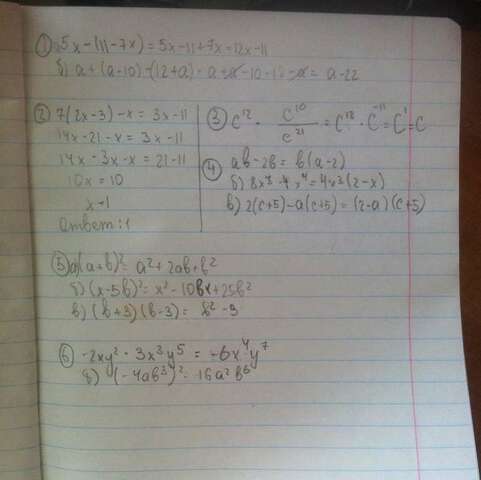 ① 5x-(11-7x)=5x-11+7x=12x-11
б) a+(a-10)-(12+a)=a+a-10-12-a=a-22
② 7(2x-3)-x=3x-11
14x-21-x=3x-11
14x-3x-x=21-11
10x=10
x=1
Ответ: 1
③ c¹² · c¹⁰/c²¹ = c¹² · c⁻¹¹=c¹=c
④ ab-2b=b(a-2)
б) 8x³-4x⁴=4x³(2-x)
в) 2(c+5)-a(c+5)=(2-a)(c+5)
⑤ а)(a+b)²=a²+2ab+b²
б) (x-5b)²=x²-10bx+25b²
в) (b+3)(b-3)=b²-9
⑥ -2xy²·3x³y⁵=-6x⁴y⁷
б) (-4ab³)²=16a²b⁶